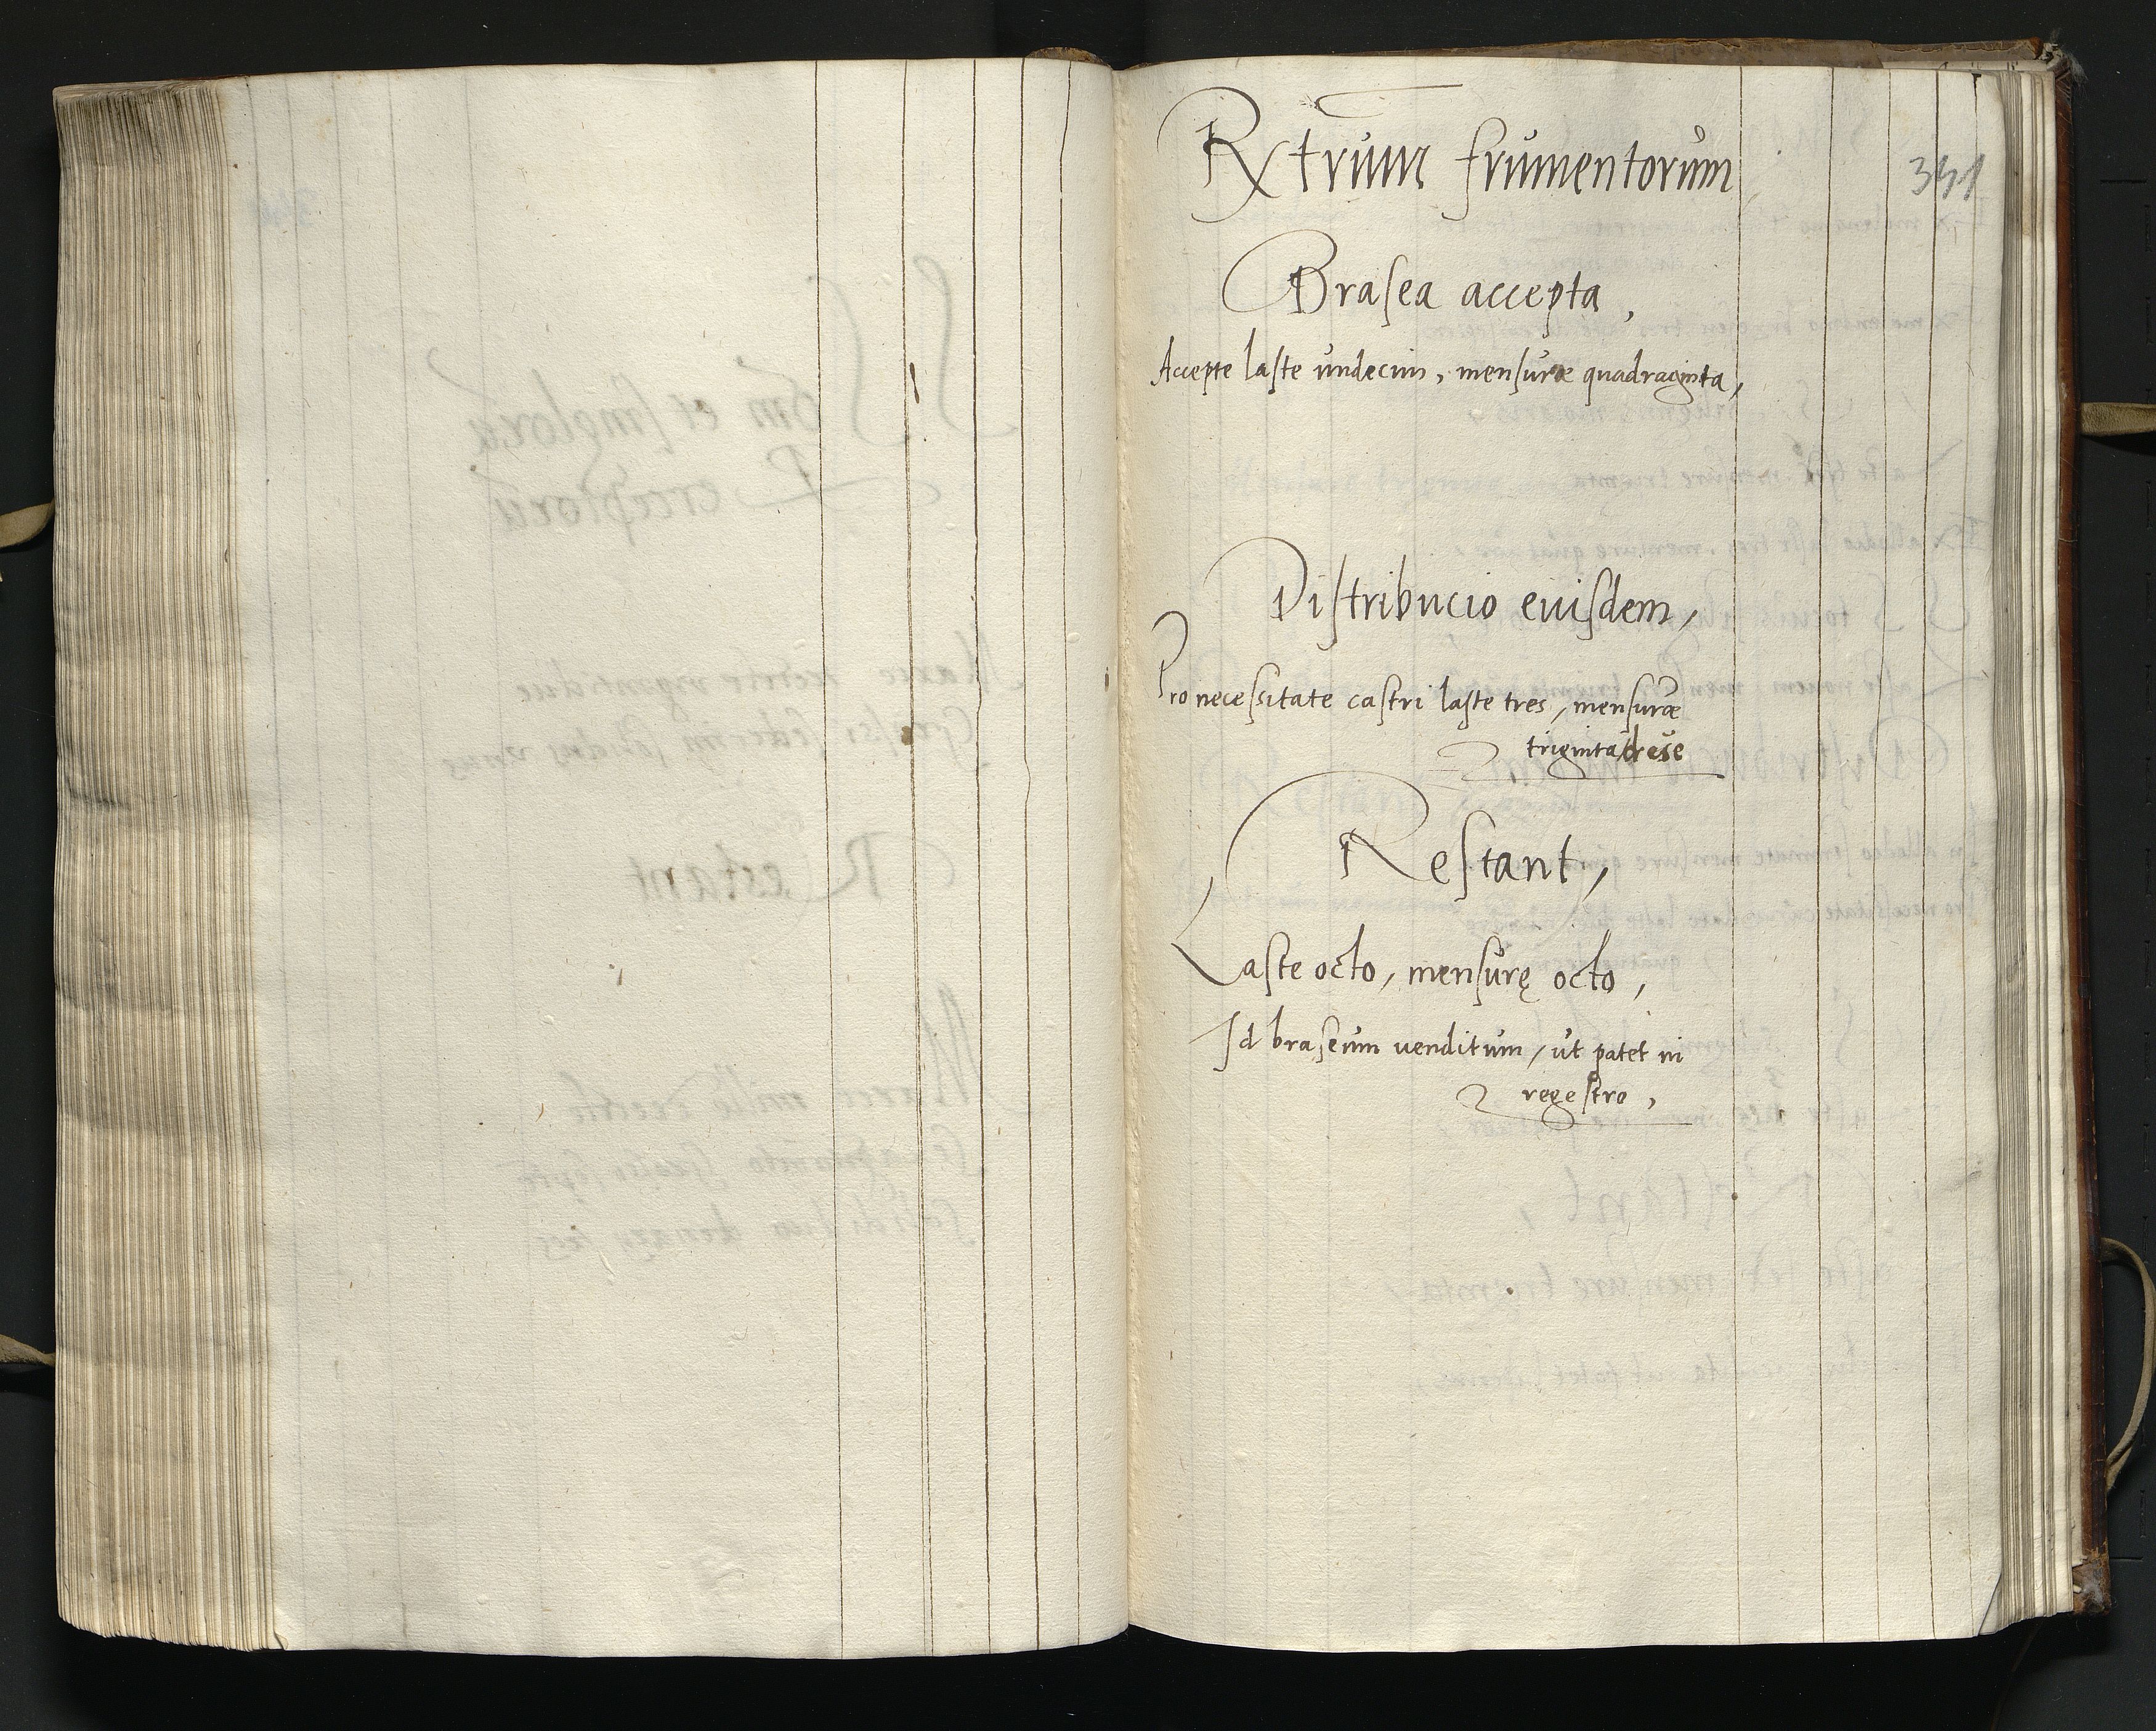 Rxtrum frumentorum
341
Brasea accepta,
Accepte laste undecim, mensuræ quadraginta,
Distribucio eiusdem,
Pro necessitate castri laste tres, mensuræ
triginta
Restant,
Laste octo, mensurę octo,
Id braseum venditum, ut patet in
regestro,